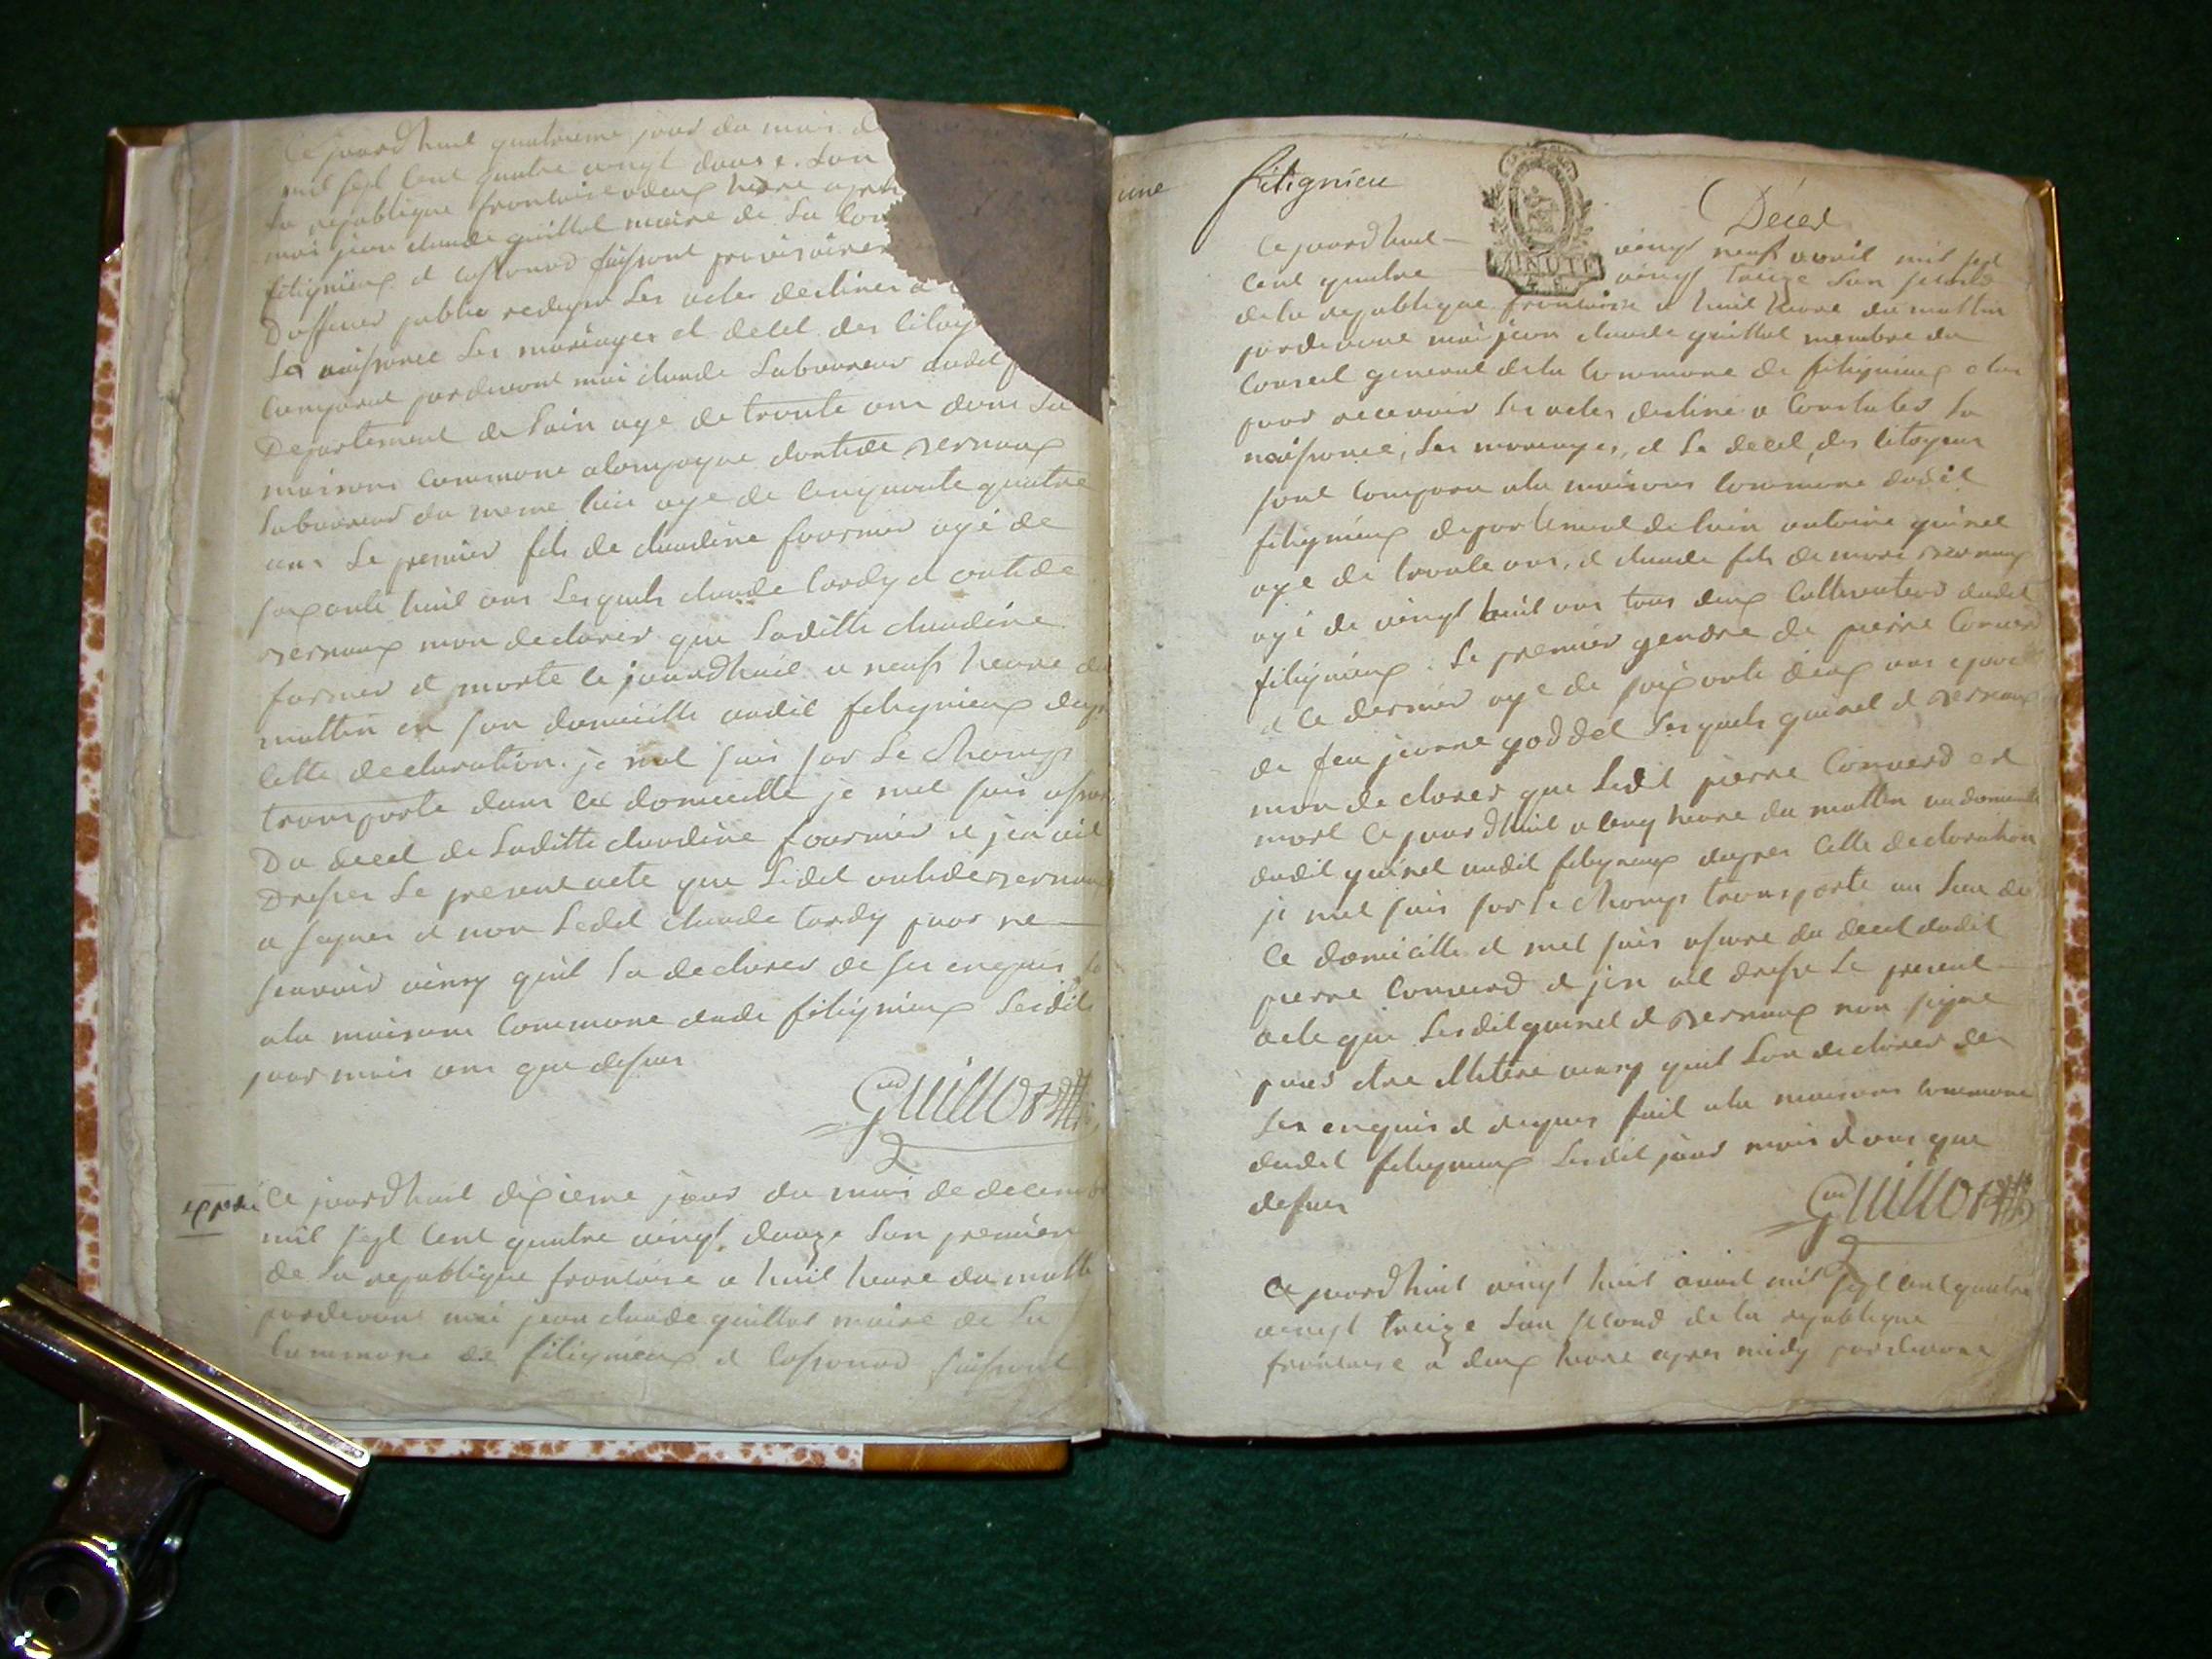 Ce jourdhuit quatrieme jour du mois de
mil sept cent quatre vingt douse. Lan
La republique frontaise a deux heure apres
moi jean claude guillot maire de La Com
fitignieux et Cossonod faissant provisoirem
Dofficier public rediger Les actes destines a
La naissance Les mariages et decet des Citoy
Comparut pardevant moi claude Laboureur dudit
Departement de Lain age de trente ans dans La
maisons Commune alompagne dontide vernaux
Laboureur du meme lieu age de Cinquante quatre
ans Le premier fils de claudine fournier agé de
soixante huit ans Lesquels claude tardy et ontide
vernaux mon declarer que Laditte claudine
fornier et morte Ce jourdhuit a neufs heure du
mattin en son domicille audit fitignieux dapr
Cette declaration. je met suis sur Le Champs
transporte dans Ce domicille je met suis assure
Du decet de Laditte claudine fournier et jen ait
Dresser Le present acte que Ledit ontide vernaux
a signer et non Ledit claude tardy pour ne
scavoir ainsy quit La declarer de ses enquis
ala maisons Commune dude fitignieux Lesdit
jour mois ans que dessus
Guillot
expedié Ce jourdhuit dixieme jour du mois de decembre
mil sept Cent quatre vingt douze Lan premier
de La republique frontaise a huit heure du matti
pardevant moi jean claude guillot maire de La
Commune de fitignieux et Cossonod faissont
une
fitignieu
Décet
Ce jourdhuit vingt neuf avril mil sept
Cent quatre MINUTE vingt treize Lan second
de la republique frontaise a huit heure du mattin
pardevant moi jean claude guillot membre du
Conseil general de la Commune de fitignieux elu
pour recevoir Les actes destine a Constater La
naissance, Les mariages, et Le decet, des Citoyens
sont Comparu ala maisons Commune dudit
fitignieux departement de Lain antoine guinet
age de trente ans, et claude fils de marc vernaux
agé de vingt huit ans tous deux Cultivateurs dudit
fitignieux. Le premier gendre de pierre Converd
et Ce dernier age de soixante deux ans epoux
de feu jeanne goddet Lesquels guinet et vernaux
mon declarer que Ledit pierre Converd est
mort Ce jourdhuit a Cinq heure du mattin au domicille
dudit guinet audit fitignieux dapres Cette declaration
je met suis sur le Champs transporte au Lieu de
Ce domicille et met suis assure du decet dudit
pierre Converd et jen ait dresse Le present
acte que Lesdit guinet et vernaux non signe
pour etre illitere ainsy quit Lon declarer de
Les enquis et requis fait ala maisons Commune
dudit fitignieux Lesdit jour mois et ans que
dessus
Guillot
Ce jourdhuit vingt huit avril mil sept Cent quatre
vingt treize Lan second de la republique
frontaise a deux heure apres midy pardevant